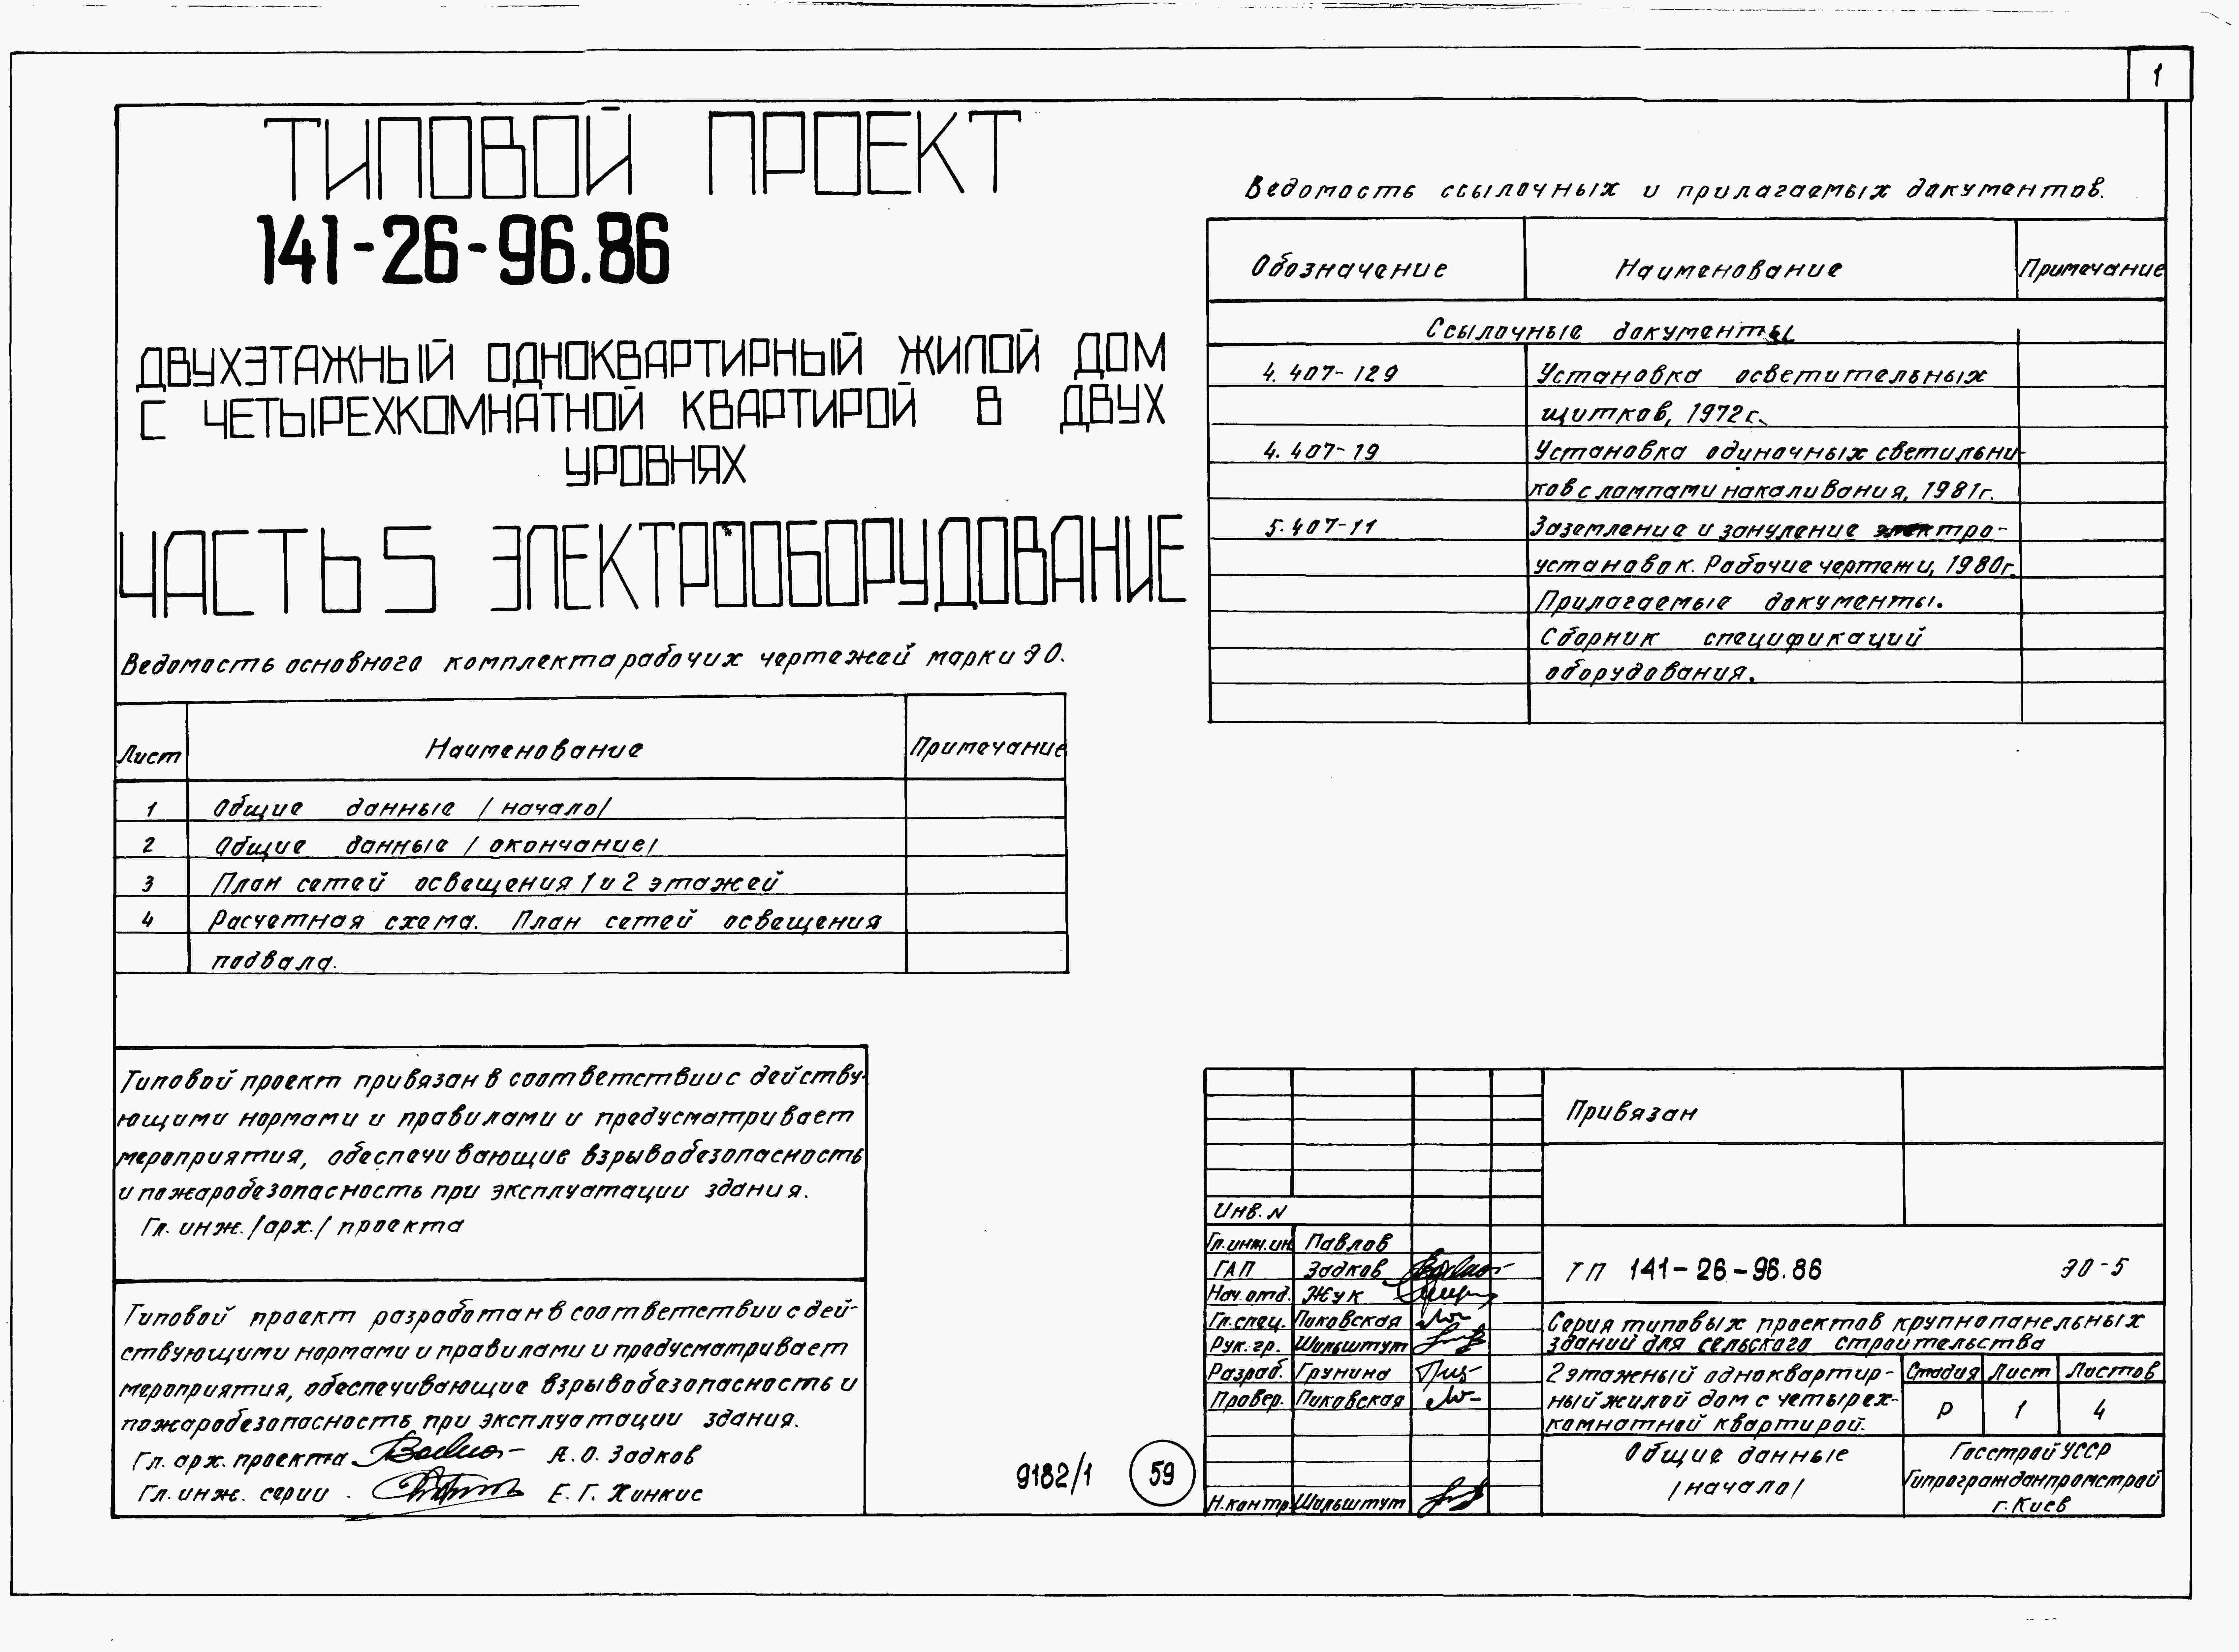 1
ТИПОВОЙ ПРОЕКТ
141-26-96.86
ДВУХЭТАЖНЫЙ ОДНОКВАРТИРНЫЙ ЖИЛОЙ ДОМ
С ЧЕТЫРЕХКОМНАТНОЙ КВАРТИРОЙ В ДВУХ
УРОВНЯХ
ЧАСТЬ 5 ЭЛЕКТРООБОРУДОВАНИЕ
Ведомость основного комплекта рабочих чертежей марки ЭО.
Лист Наименование Примечание
1 Общие данные /начало/
2 Общие данные /окончание/
3 План сетей освещения 1 и 2 этажей
4 Расчетная схема. План сетей освещения
подвала.
Типовой проект привязан в соответствии с действу-
ющими нормами и правилами и предусматривает
мероприятия, обеспечивающие взрывобезопасность
и пожаробезопасность при эксплуатации здания.
Гл. инж. /арх./ проекта
Типовой проект разработан в соответствии с дей-
ствующими нормами и правилами и предусматривает
мероприятия, обеспечивающие взрывобезопасность и
пожаробезопасность при эксплуатации здания.
Гл. арх. проекта А. О. Задков
Гл. инж. серии Е. Г. Хинкис
Ведомость ссылочных и прилагаемых документов.
Обозначение Наименование Примечание
Ссылочные документы
4.407-129 Установка осветительных
щитков, 1972г.
4.407-19 Установка одиночных светильни-
ков с лампами накаливания, 1981г.
5.407-11 Заземление и зануление электро-
установок. Рабочие чертежи, 1980г.
Прилагаемые документы.
Сборник спецификаций
оборудования.
9182/1 59
Привязан
Инв. N
Гл.инж.ин Павлов
ГАП Задков
Нач.отд. Жук
Гл.спец. Пиковская
Рук. гр. Шильштут
Разраб. Грунина
Провер. Пиковская
Н.контр. Шильштут
ТП 141-26-96.86 ЭО-5
Серия типовых проектов крупнопанельных
зданий для сельского строительства
2 этажный одноквартир-
ный жилой дом с четырех-
комнатной квартирой.
Стадия Лист Листов
Р 1 4
Общие данные
/начало/
Госстрой УССР
Гипрогражданпромстрой
г. Киев